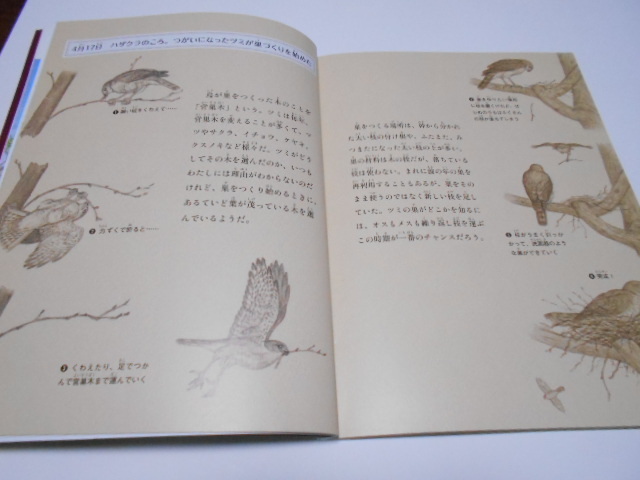 4月17日 ハザクラのころ、つがいになったツミが巣づくりを始めた
鳥が巣をつくった木のことを
「営巣木」という。ツミは毎年、
営巣木を変えることが多くて、マ
ツやサクラ、イチョウ、ケヤキ、
クスノキなど様々だ。ツミがどう
してその木を選んだのか、いつも
わたしには理由がわからないのだ
けれど、巣をつくり始めるときに、
あるていど葉が茂っている木を選
んでいるようだ。
❷ 力ずくで折ると──
❸ くわえたり、足でつか
んで営巣木まで運んでいく
巣をつくる場所は、幹から分かれ
た太い枝の付け根や、ふたまた、み
つまたになった太い枝のとが多い。
巣の材料は木の枝だが、落ちている
枝は使わない。まれに前の年の巣を
再利用することもあるが、巣をその
まま使うのではなく新しい枝を足し
ていた。ツミの巣がどこかを知るに
は、オスもメスも繰り返し枝を運ぶ
この時期が一番のチャンスだろう。
❻ 完成!